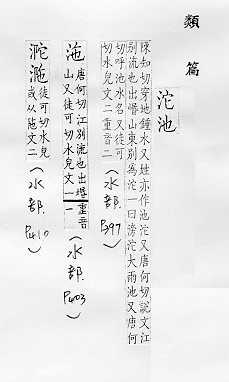 類篇
沱池
陳知切穿地鍾水又姓亦作池沱又唐何切說文江
別流也出㟭山東別為沱一曰滂沱大雨池又唐何
切呼池水名又徒可
切水皃文二重音二
(水部.P397)
沲
唐何切江別流也出㟭
山又徒可切水皃文一重音一
(水部.P403)
徒可切水皃
或从陁文二
(水部.P410)